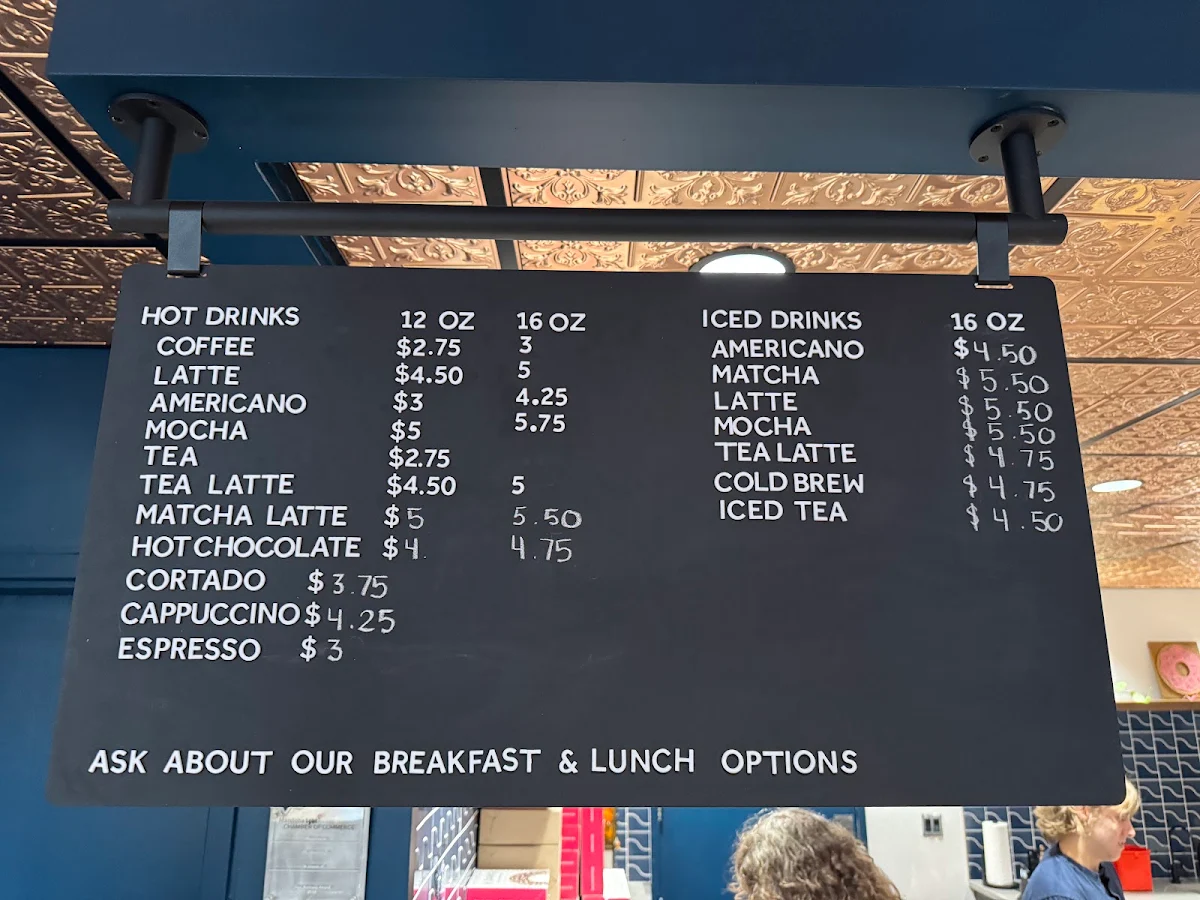 HOT DRINKS 12 OZ 16 OZ
COFFEE $2.75 3
LATTE $4.50 5
AMERICANO $3 4.25
MOCHA $5 5.75
TEA $2.75
TEA LATTE $4.50 5
MATCHA LATTE $5 5.50
HOT CHOCOLATE $4. 4.75
CORTADO $3.75
CAPPUCCINO $4.25
ESPRESSO $3
ICED DRINKS 16 OZ
AMERICANO $4.50
MATCHA $5.50
LATTE $5.50
MOCHA $5.50
TEA LATTE $4.75
COLD BREW $4.75
ICED TEA $4.50
ASK ABOUT OUR BREAKFAST & LUNCH OPTIONS
CHAMBER OF COMMERCE